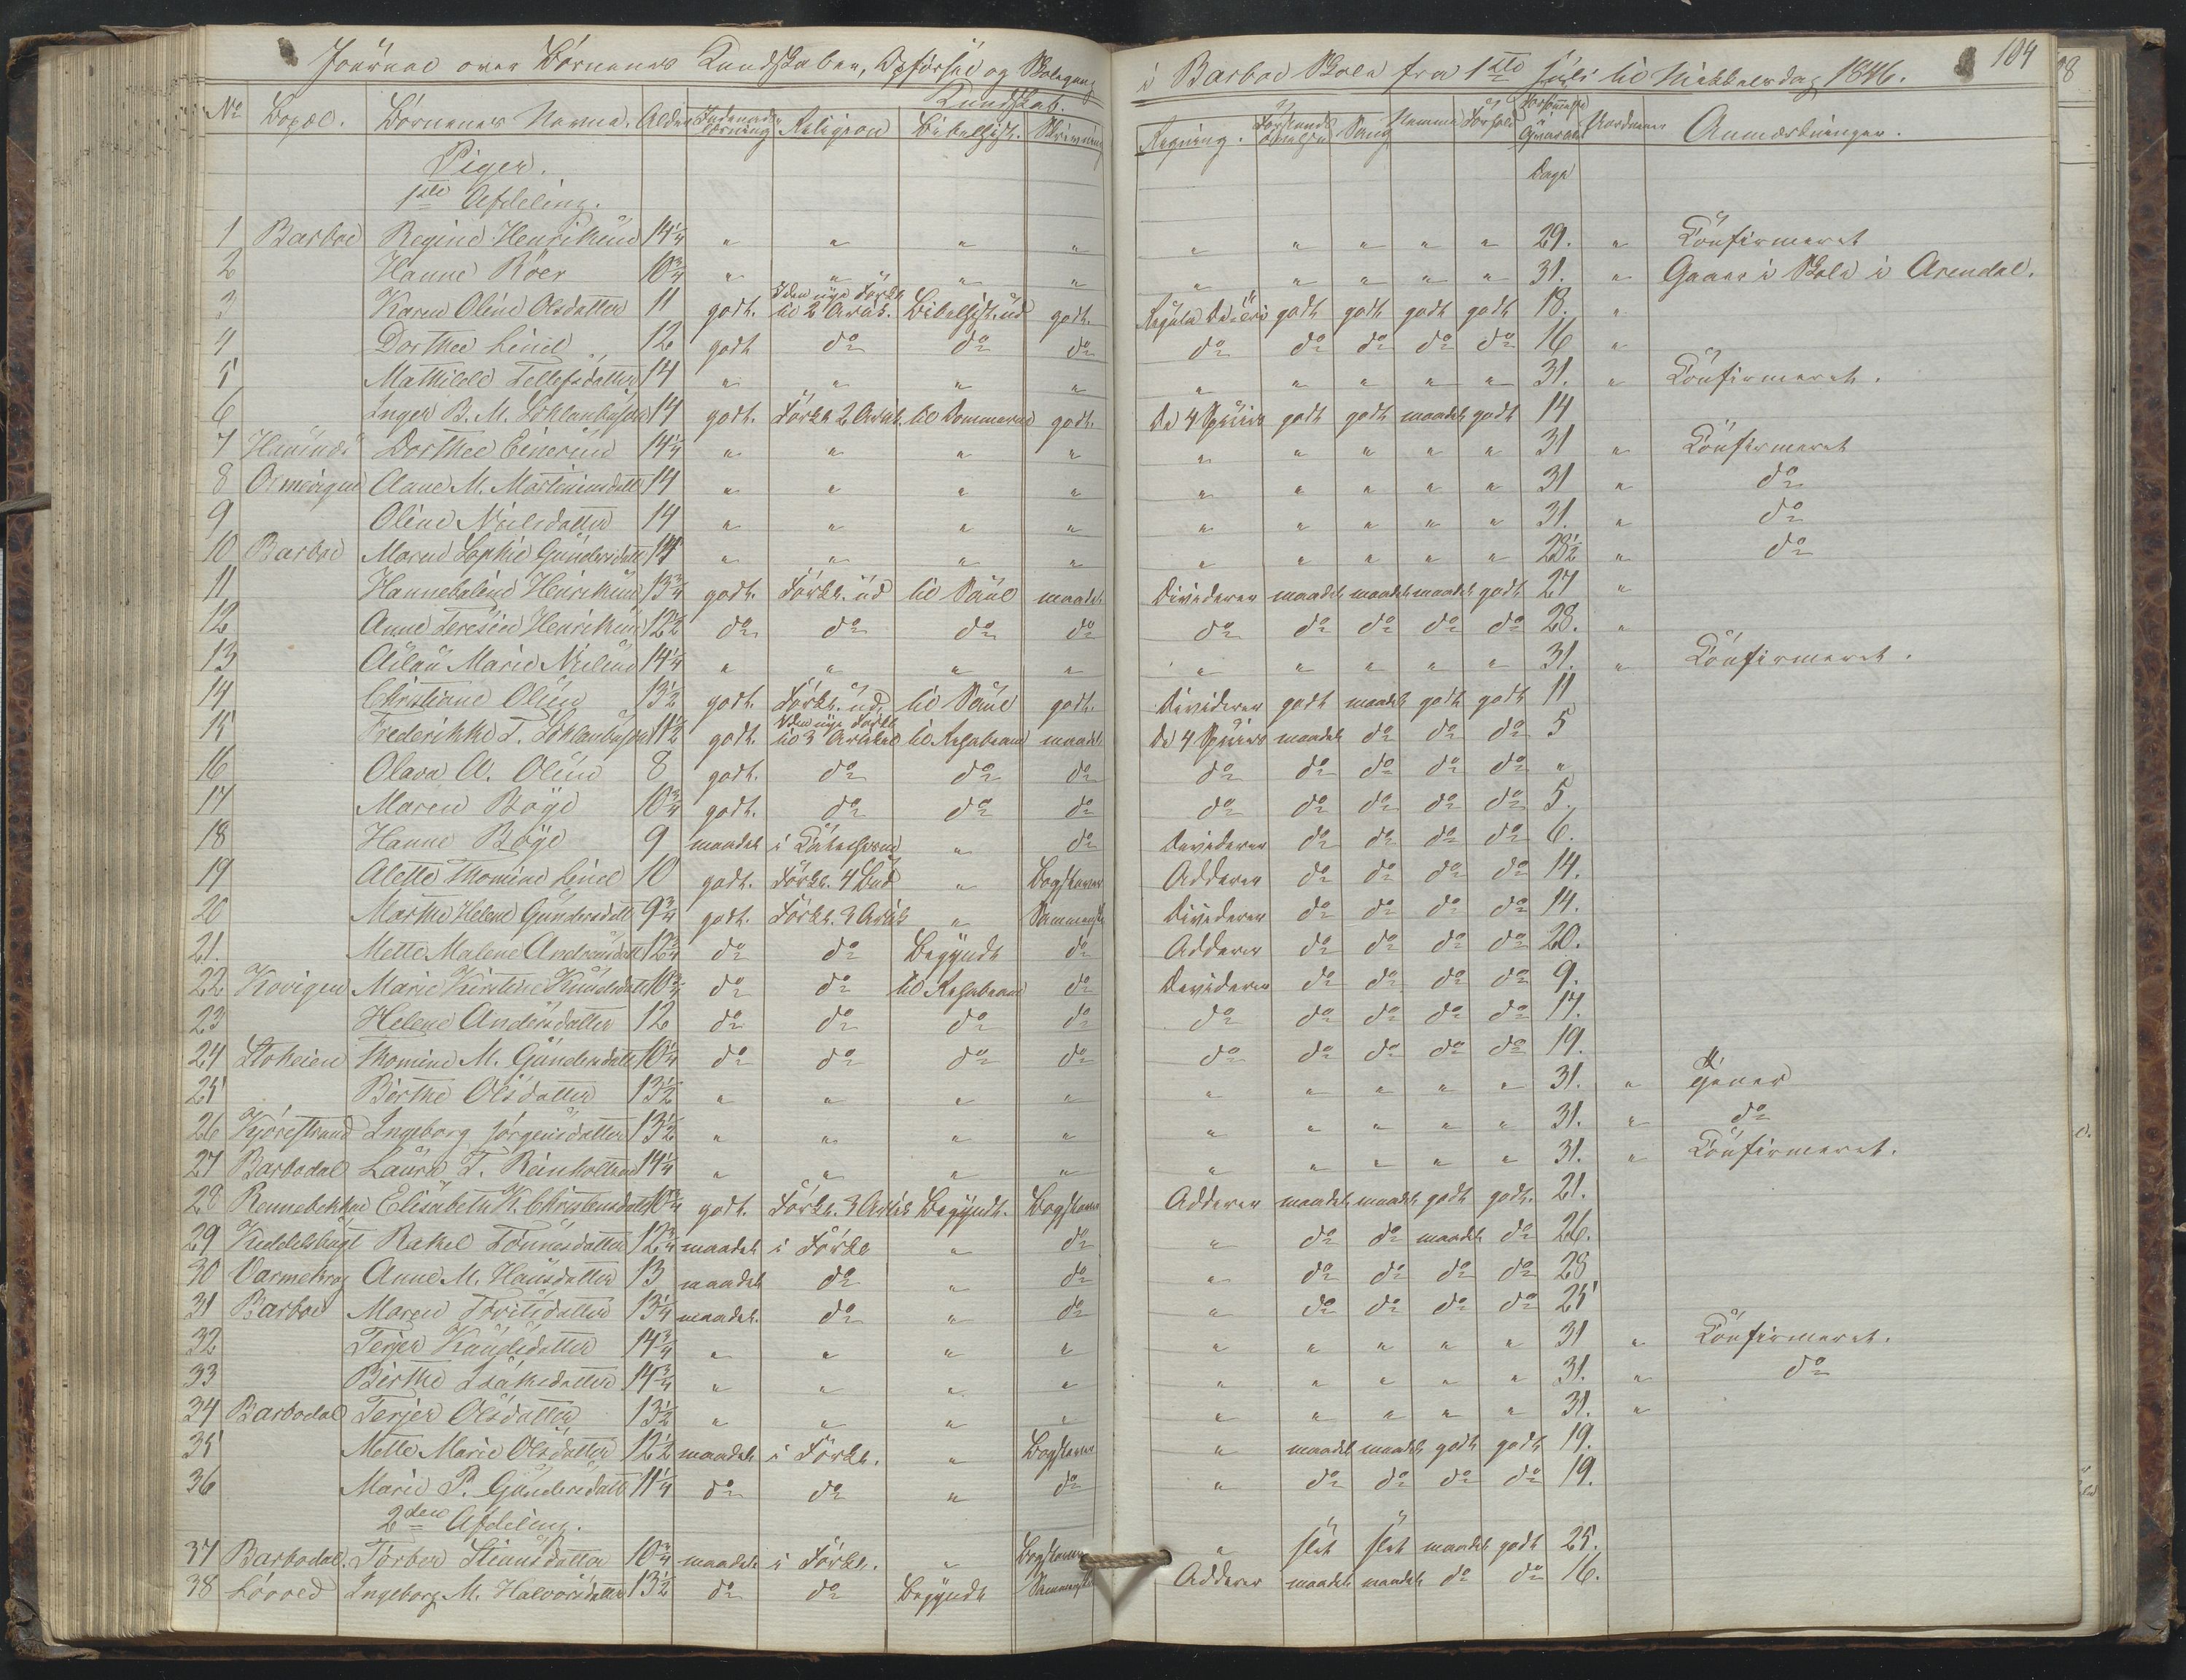 Journal over Børnenes Kundskaber, Opførsel og Skolegang i Barboe Skole fra 1ste Juli til Mikkelsdag 1846. 104
Kundskab.
No Bopæl. Børnenes Navne. Alder Indenadslæsning Religion Bibelhist. Skrivning Regning. Forstandsøvelse Sang Nemme Forhold Forsømmelse Anmærkninger.
Piger. Dage
1ste Afdeling.
1 Barboe Regine Henriksen 14 1/4 " " " " " " " " " 29. " Confirmeret
2 Hanne Röer 10 3/4 " " " " " " " " " 31. " Gaaer i Skole i Arendal.
3 Karen Oline Olsdatter 11 godt. I den nye Forkl. til 2 Artik. Bibelhist. ud godt. Regula Detri godt godt godt godt 18. "
4 Dorthee Liniel 12 godt do do do do do do do do 16 "
5 Mathilde Tellefsdatter 14 " " " " " " " " " 31. " Confirmeret.
6 Inger B. M. 14 godt. Forkl. 2 Artik. til Dommerne godt. De 4 Species godt godt maadel. godt 14
7 Dorthee Einersen 14 1/4 " " " " " " " " " 31 " Confirmeret
8 Aane M. Martiniusdatt 14 " " " " " " " " " 31 " do
9 Oline Nielsdatter 14 " " " " " " " " " 31. " do
10 Barboe Maren Sophie Gundersdatt 14 " " " " " " " " 28 1/2 " do
11 Henriksen 13 3/4 godt. Forkl. ud til Saul maadel. Dividerer maadel. maadel. maadel. godt 27 "
12 Anne Teresie Henriksen 12 1/2 do do do do do do do do do 28. "
13 Marie Nielsen 14 1/4 " " " " " " " " " 31. " Confirmeret.
14 Christiane Olsen 13 1/2 godt. Forkl. ud til Saul godt. Dividerer godt maadel. godt godt 11
15 Frederikke T. 11 1/2 godt. I den nye Forkl. til 3 Artikel til Rehabeam maadel. De 4 Species maadel. do do do 5
16 Olava A. Olsen 8 godt. do do do do do do do do "
17 Maren Boye 10 3/4 godt. do do do do do do do do 5.
18 Hanne Boye 9 maadel. i " do Dividerer do do do do 6.
19 Alette Thomine Liniel 10 godt. Forkl. 4 Bud " Bogstaver Adderer do do do do 14.
20 Marthe Helene Gundersdatt 9 3/4 godt. Forkl. 3 Artik " Dividerer do do do do 14.
21. Mette Malene Andersdatt 12 3/4 do do Begyndt do Adderer do do do do 20.
22 Kovigen Marie Kirstine Knudsdatt 10 3/4 do do til Rehabeam do Dividerer do do do do 9.
23 Helene Andersdatter 12 do do do do do do do do do 17.
24 Stoheien Thomine M. Gundersdatt 10 1/4 do do do do do do do do do 19.
25 Berthe Olsdatter 13 1/2 " " " " " " " " " 31. " tjener
26 Kjörestrand Ingeborg Jörgensdatter 13 1/2 " " " " " " " " " 31. " do
27 Barbodal Laura T. Reinholtsen 14 1/4 " " " " " " " " " 31. " Confirmeret.
28 Rennebekken Elisabeth K. Christensdatt 10 3/4 godt. Forkl. 3 Artik Begyndt. Bogstaver Adderer maadel. maadel. godt godt. 21.
29 Rakel Tönnesdatter 12 3/4 maadel. i Forkl " do " do do maadel. do 26.
30 Anne M. Hansdatter 13 maadel. do " do " do do do do 28
31 Barboe Maren 13 1/4 maadel. do " do " do do do do 25
32 Terjer Knudsdatter 14 3/4 " " " " " " " " " 31 " Confirmeret.
33 Berthe Isaksdatter 14 3/4 " " " " " " " " " 31. " do
34 Barbodal Terjer Olsdatter 13 1/2 " " " " " " " " " 31. "
35 Mette Marie Olsdatter 12 1/2 maadel. i Forkl. " Bogstaver " maadel. maadel. godt godt 19.
36 Marie P. Gundersdatt 11 1/4 do do " do " do do do do 19.
2den Afdeling.
37 Barbodal. Torber Stiansdatter 10 3/4 maadel. i Forkl. " Bogstaver " slet slet maadel. godt 25.
38 Lövved Ingeborg M. Halvorsdatter 13 1/2 do do Begyndt Adderer maadel. maadel. do do 16.